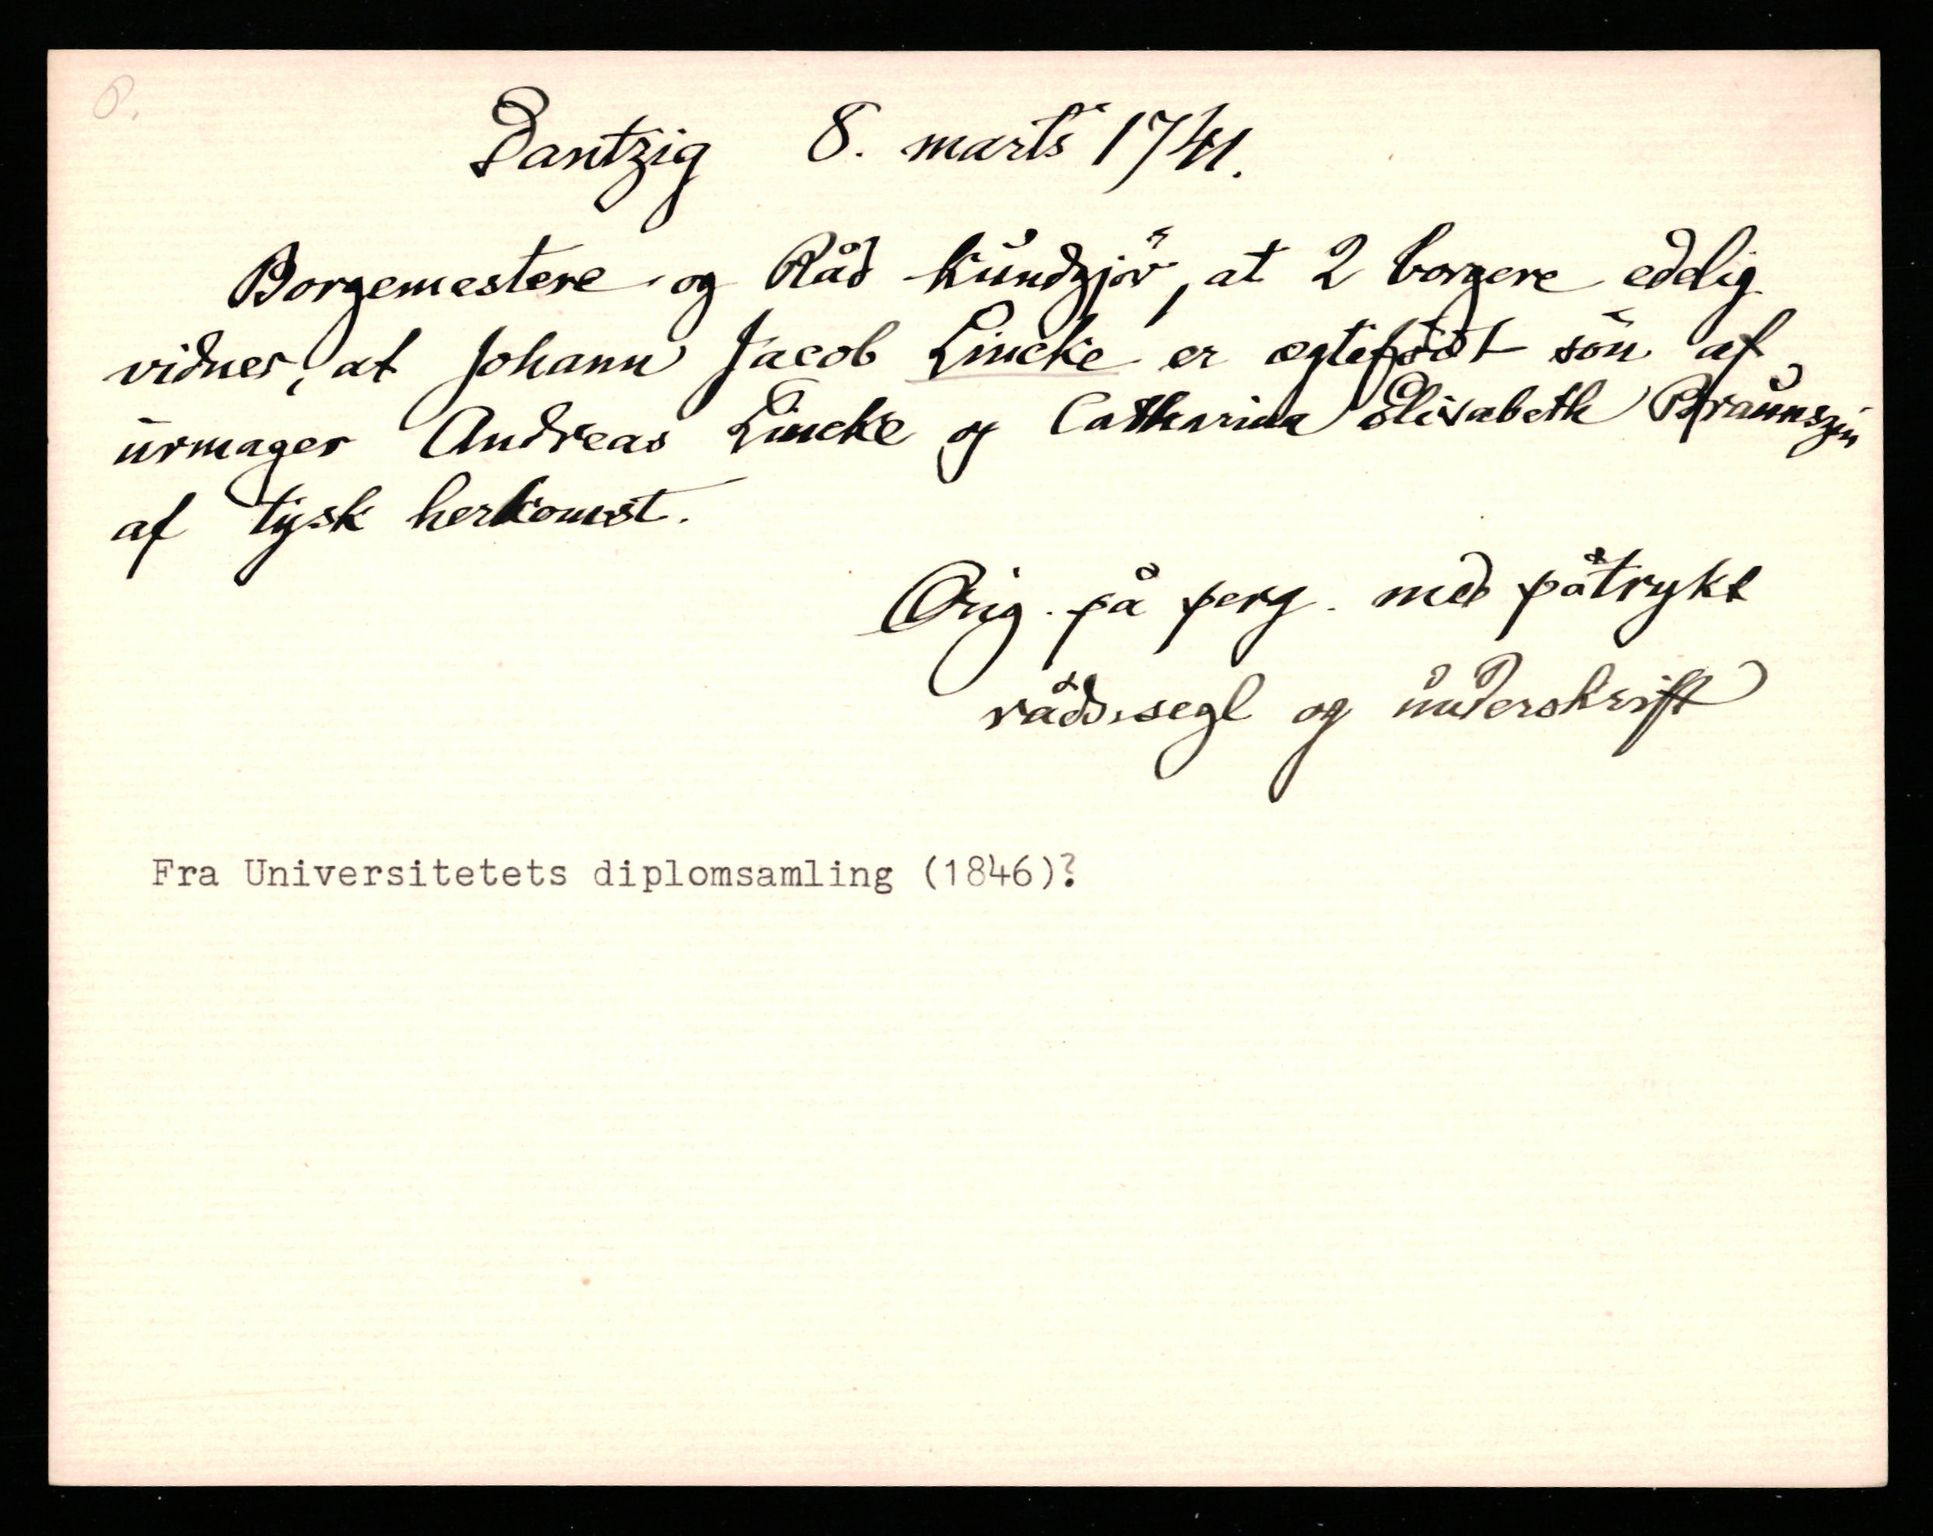 8.
Dantzig 8. marts 1741.
Borgemestere og Råd kundgjör, at 2 borgere edelig
vidner, at Johann Jacob Lincke er egtefödt sön af
urmager Andreas Lincke og Catharina Elisabeth
af tysk herkomst.
Orig. på perg. med påtrykt
rådssegl og underskrift
Fra Universitetets diplomsamling (1846)?